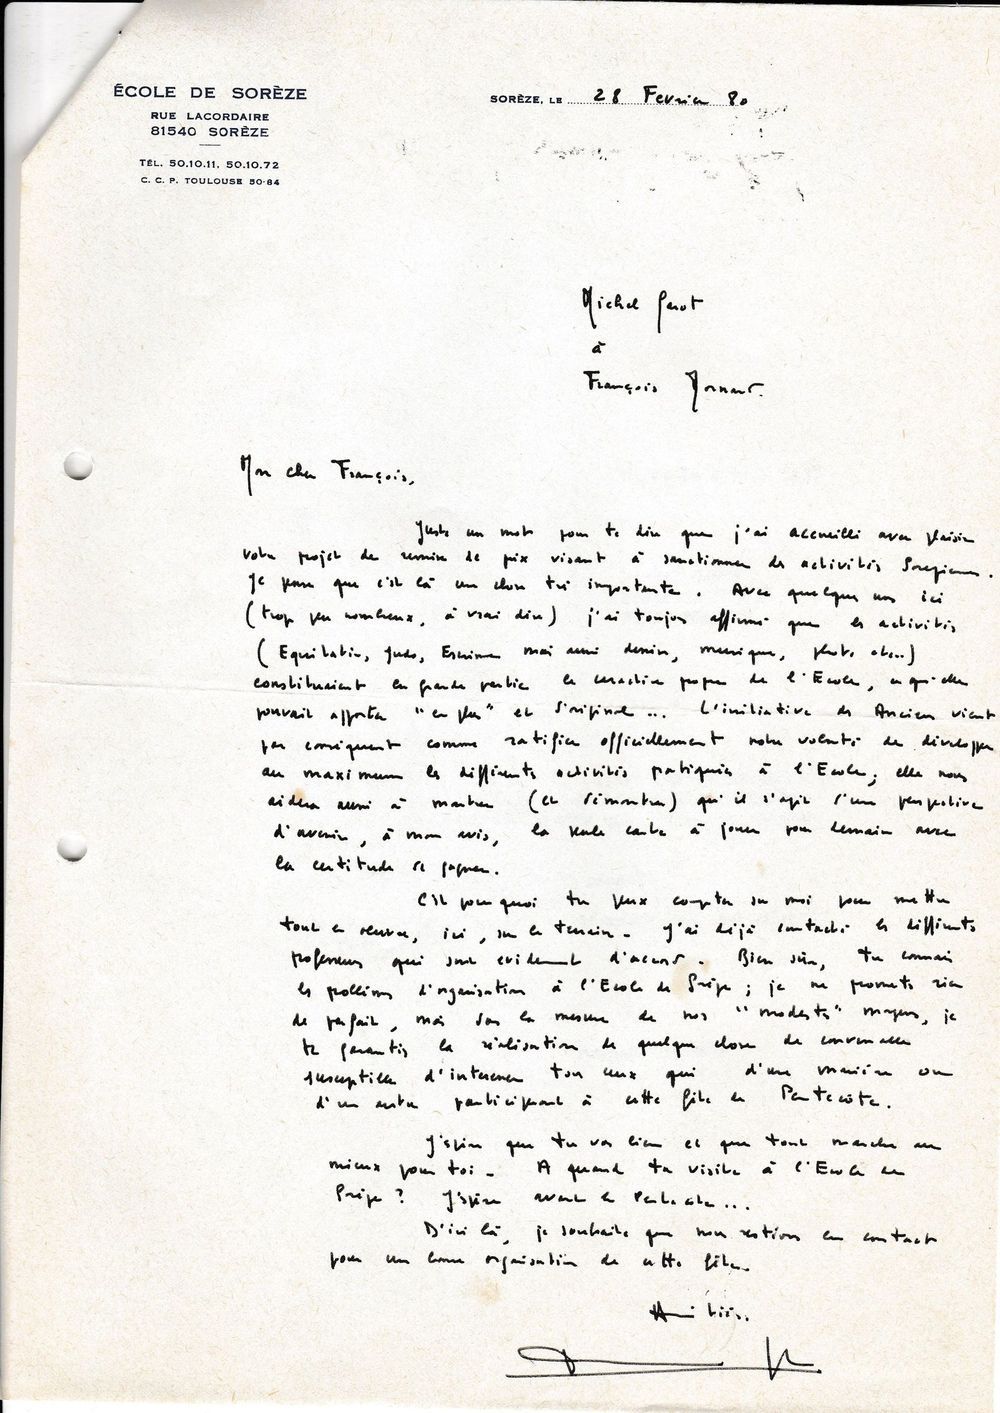 ÉCOLE DE SORÈZE
RUE LACORDAIRE
81540 SORÈZE
TÉL. 50.10.11. 50.10.72
C. C. P. TOULOUSE 50-84
SORÈZE, LE 28 Fevrier 80
Michel
à
François
Mon cher François,
Juste un mot pour te dire que j'ai accueilli avec plaisir
votre projet de remise de prix visant à sanctionner des activités Soreziennes.
Je pense que c'est là une chose très importante. Avec quelques uns ici
(trop peu nombreux, à vrai dire) j'ai toujours affirmé que les activités
(Equitation, Judo, Escrime mais aussi dessin, musique, photo etc..)
constituaient en grande partie le caractère propre de l'Ecole, ce qu'elle
pouvait apporter "en plus" et d'original... L'initiative des Anciens vient
par conséquent comme ratifier officiellement notre volonté de développer
au maximum les différents activités pratiquées à l'Ecole; elle nous
aidera aussi à montrer (et démontrer) qu'il s'agit d'une perspective
d'avenir, à mon avis, la seule carte à jouer pour demain avec
la certitude de gagner.
C'est pourquoi tu peux compter sur moi pour mettre
tout en oeuvre, ici, sur le terrain. J'ai déjà contacté les différents
professeurs qui sont evidemment d'accord. Bien sûr, tu connais
les problèmes d'organisation à l'Ecole de Sorèze; je ne promets rien
de parfait, mais dans la mesure de nos "modestes" moyens, je
te garantis la réalisation de quelque chose de convenable
susceptible d'interesser tous ceux qui d'une manière ou
d'une autre participeront à cette fête de Pentecôte.
J'espère que tu vas bien et que tout marche au
mieux pour toi. A quand ta visite à l'Ecole de
Sorèze? J'espère avant la Pentecôte...
D'ici là, je souhaite que nous restions en contact
pour une bonne organisation de cette fête.
Amitiés.